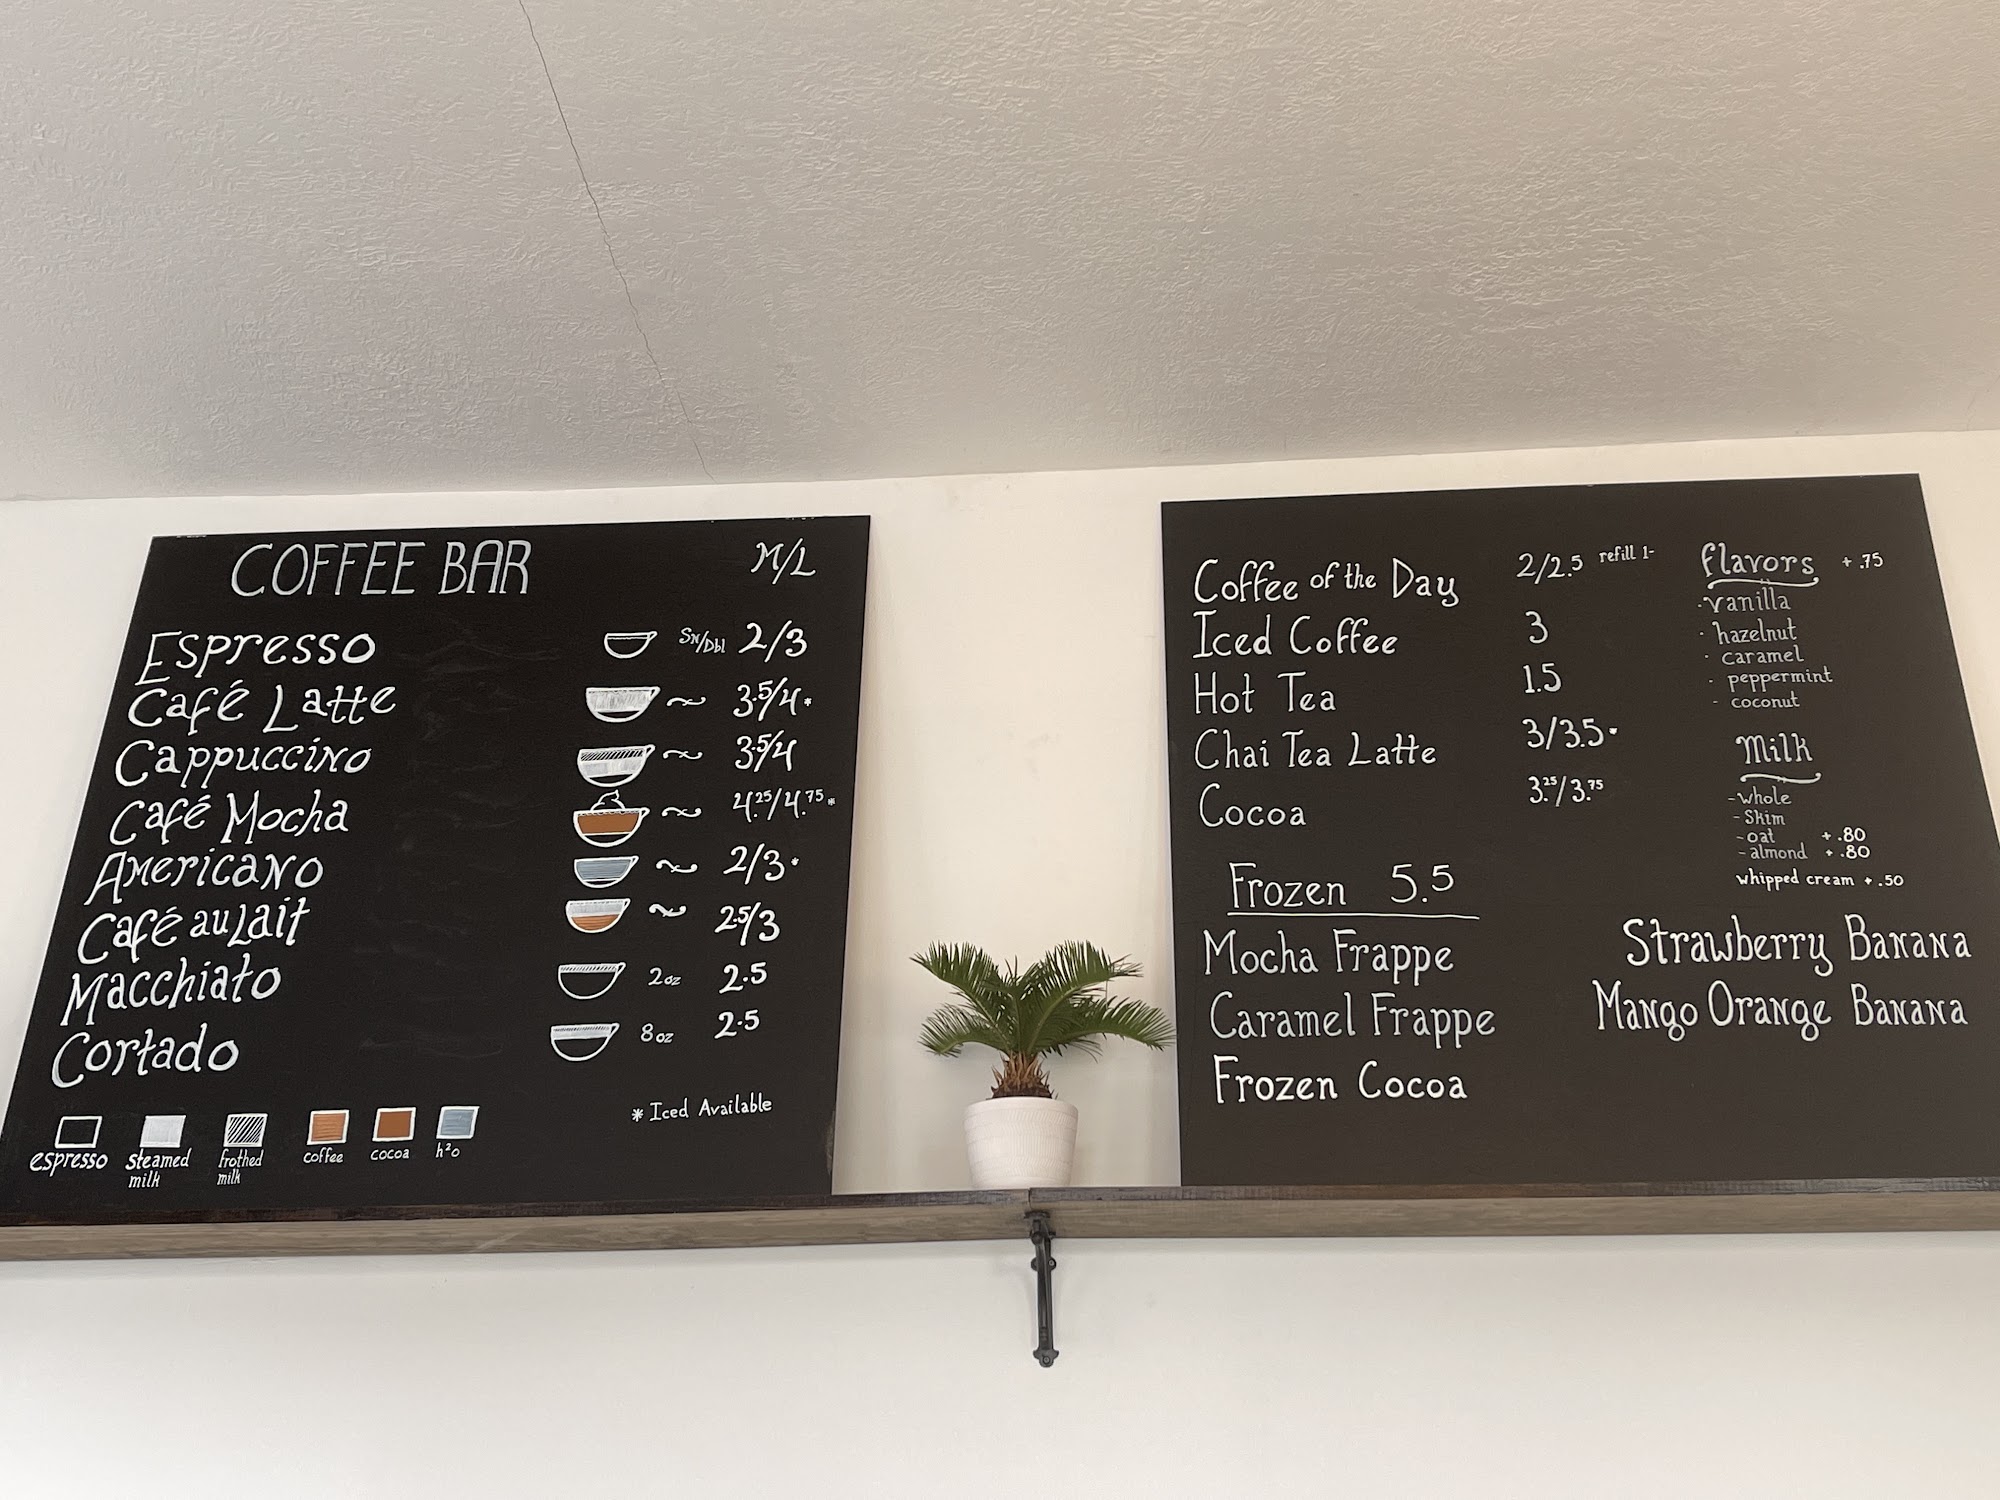 COFFEE BAR M/L
Espresso Sn/Dbl 2/3
Café Latte ~ 3.5/4*
Cappuccino ~ 3.5/4
Café Mocha ~ 4.25/4.75*
Americano ~ 2/3*
Café au Lait ~ 2.5/3
Macchiato 2oz 2.5
Cortado 8oz 2.5
* Iced Available
espresso steamed milk frothed milk coffee cocoa h²o
Coffee of the Day 2/2.5 refill 1-
Iced Coffee 3
Hot Tea 1.5
Chai Tea Latte 3/3.5*
Cocoa 3.25/3.75
Frozen 5.5
Mocha Frappe
Caramel Frappe
Frozen Cocoa
Flavors +.75
· vanilla
· hazelnut
· caramel
· peppermint
- coconut
Milk
- whole
- skim
- oat +.80
- almond +.80
whipped cream +.50
Strawberry Banana
Mango Orange Banana